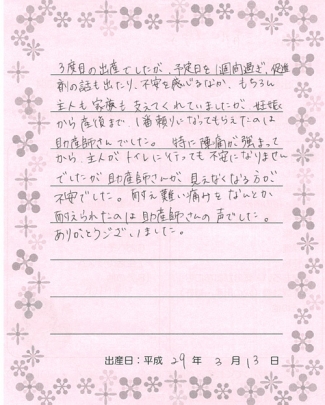 3度目の出産でしたが、予定日を1週間過ぎ、促進
剤の話も出たり、不安を感じるなか、もちろん
主人も家族も支えてくれていましたが、妊娠
から産後まで1番頼りになってもらえたのは
助産師さんでした。特に陣痛が強まって
から、主人がトイレに行っても不安になりません
でしたが助産師さんが見えなくなる方が
不安でした。耐え難い痛みをなんとか
耐えられたのは助産師さんの声でした。
ありがとうございました。
出産日：平成 29 年 3 月 13 日